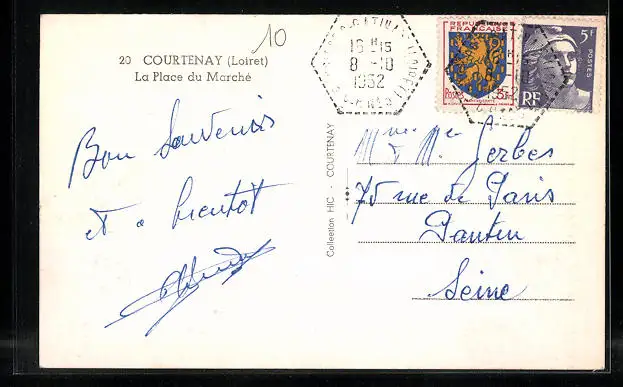 10
20 COURTENAY (Loiret)
La Place du Marché
16 H 15
8 - 10
1952
REPUBLIQUE
FRANÇAISE
Postes
5F
POSTES
RF
Bon Souvenirs
et a bientot
Collection HIC - COURTENAY
Mme & Mr Gerbes
75 rue de Paris
Pantin
Seine